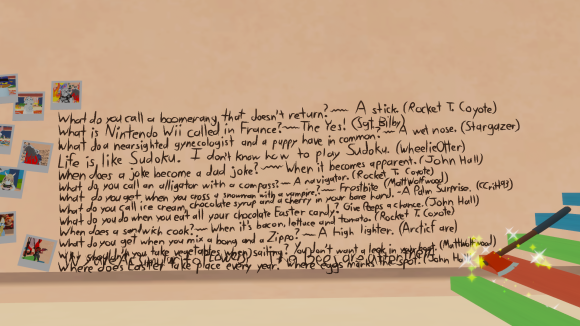 What do you call a boomerang that doesn't return? ~~ A stick. (Rocket T. Coyote)
What is Nintendo Wii called in France? ~~ The Yes! (Sgt. Bilby)
What do a nearsighted gynecologist and a puppy have in common? ~ A wet nose. (Stargazer)
Life is like Sudoku. I don't know how to play Sudoku. (WheelieOtter)
When does a joke become a dad joke? ~~ When it becomes apparent. (John Hall)
What do you call an alligator with a compass? ~ A navigator. (Rocket T. Coyote)
What do you get when you cross a snowman with a vampire? ~~ Frostbite (Mattwolfwood)
What do you call ice cream, chocolate syrup and a cherry in your bare hand. ~A Palm Surprise.
What do you do when you eat all your chocolate Easter candy? Give Peeps a chance. (John Hall)
When does a sandwich cook? ~~ When it's bacon, lettuce and tomato. (Rocket T. Coyote)
What do you get when you mix a bong and a Zippo? ~ A high lighter. (Arctic Fae)
Why shouldn't you take vegetables when sailing? You don't want a leek in your boat. (Mattwolfwood)
Where does Easter take place every year. Where eggs marks the spot. (John